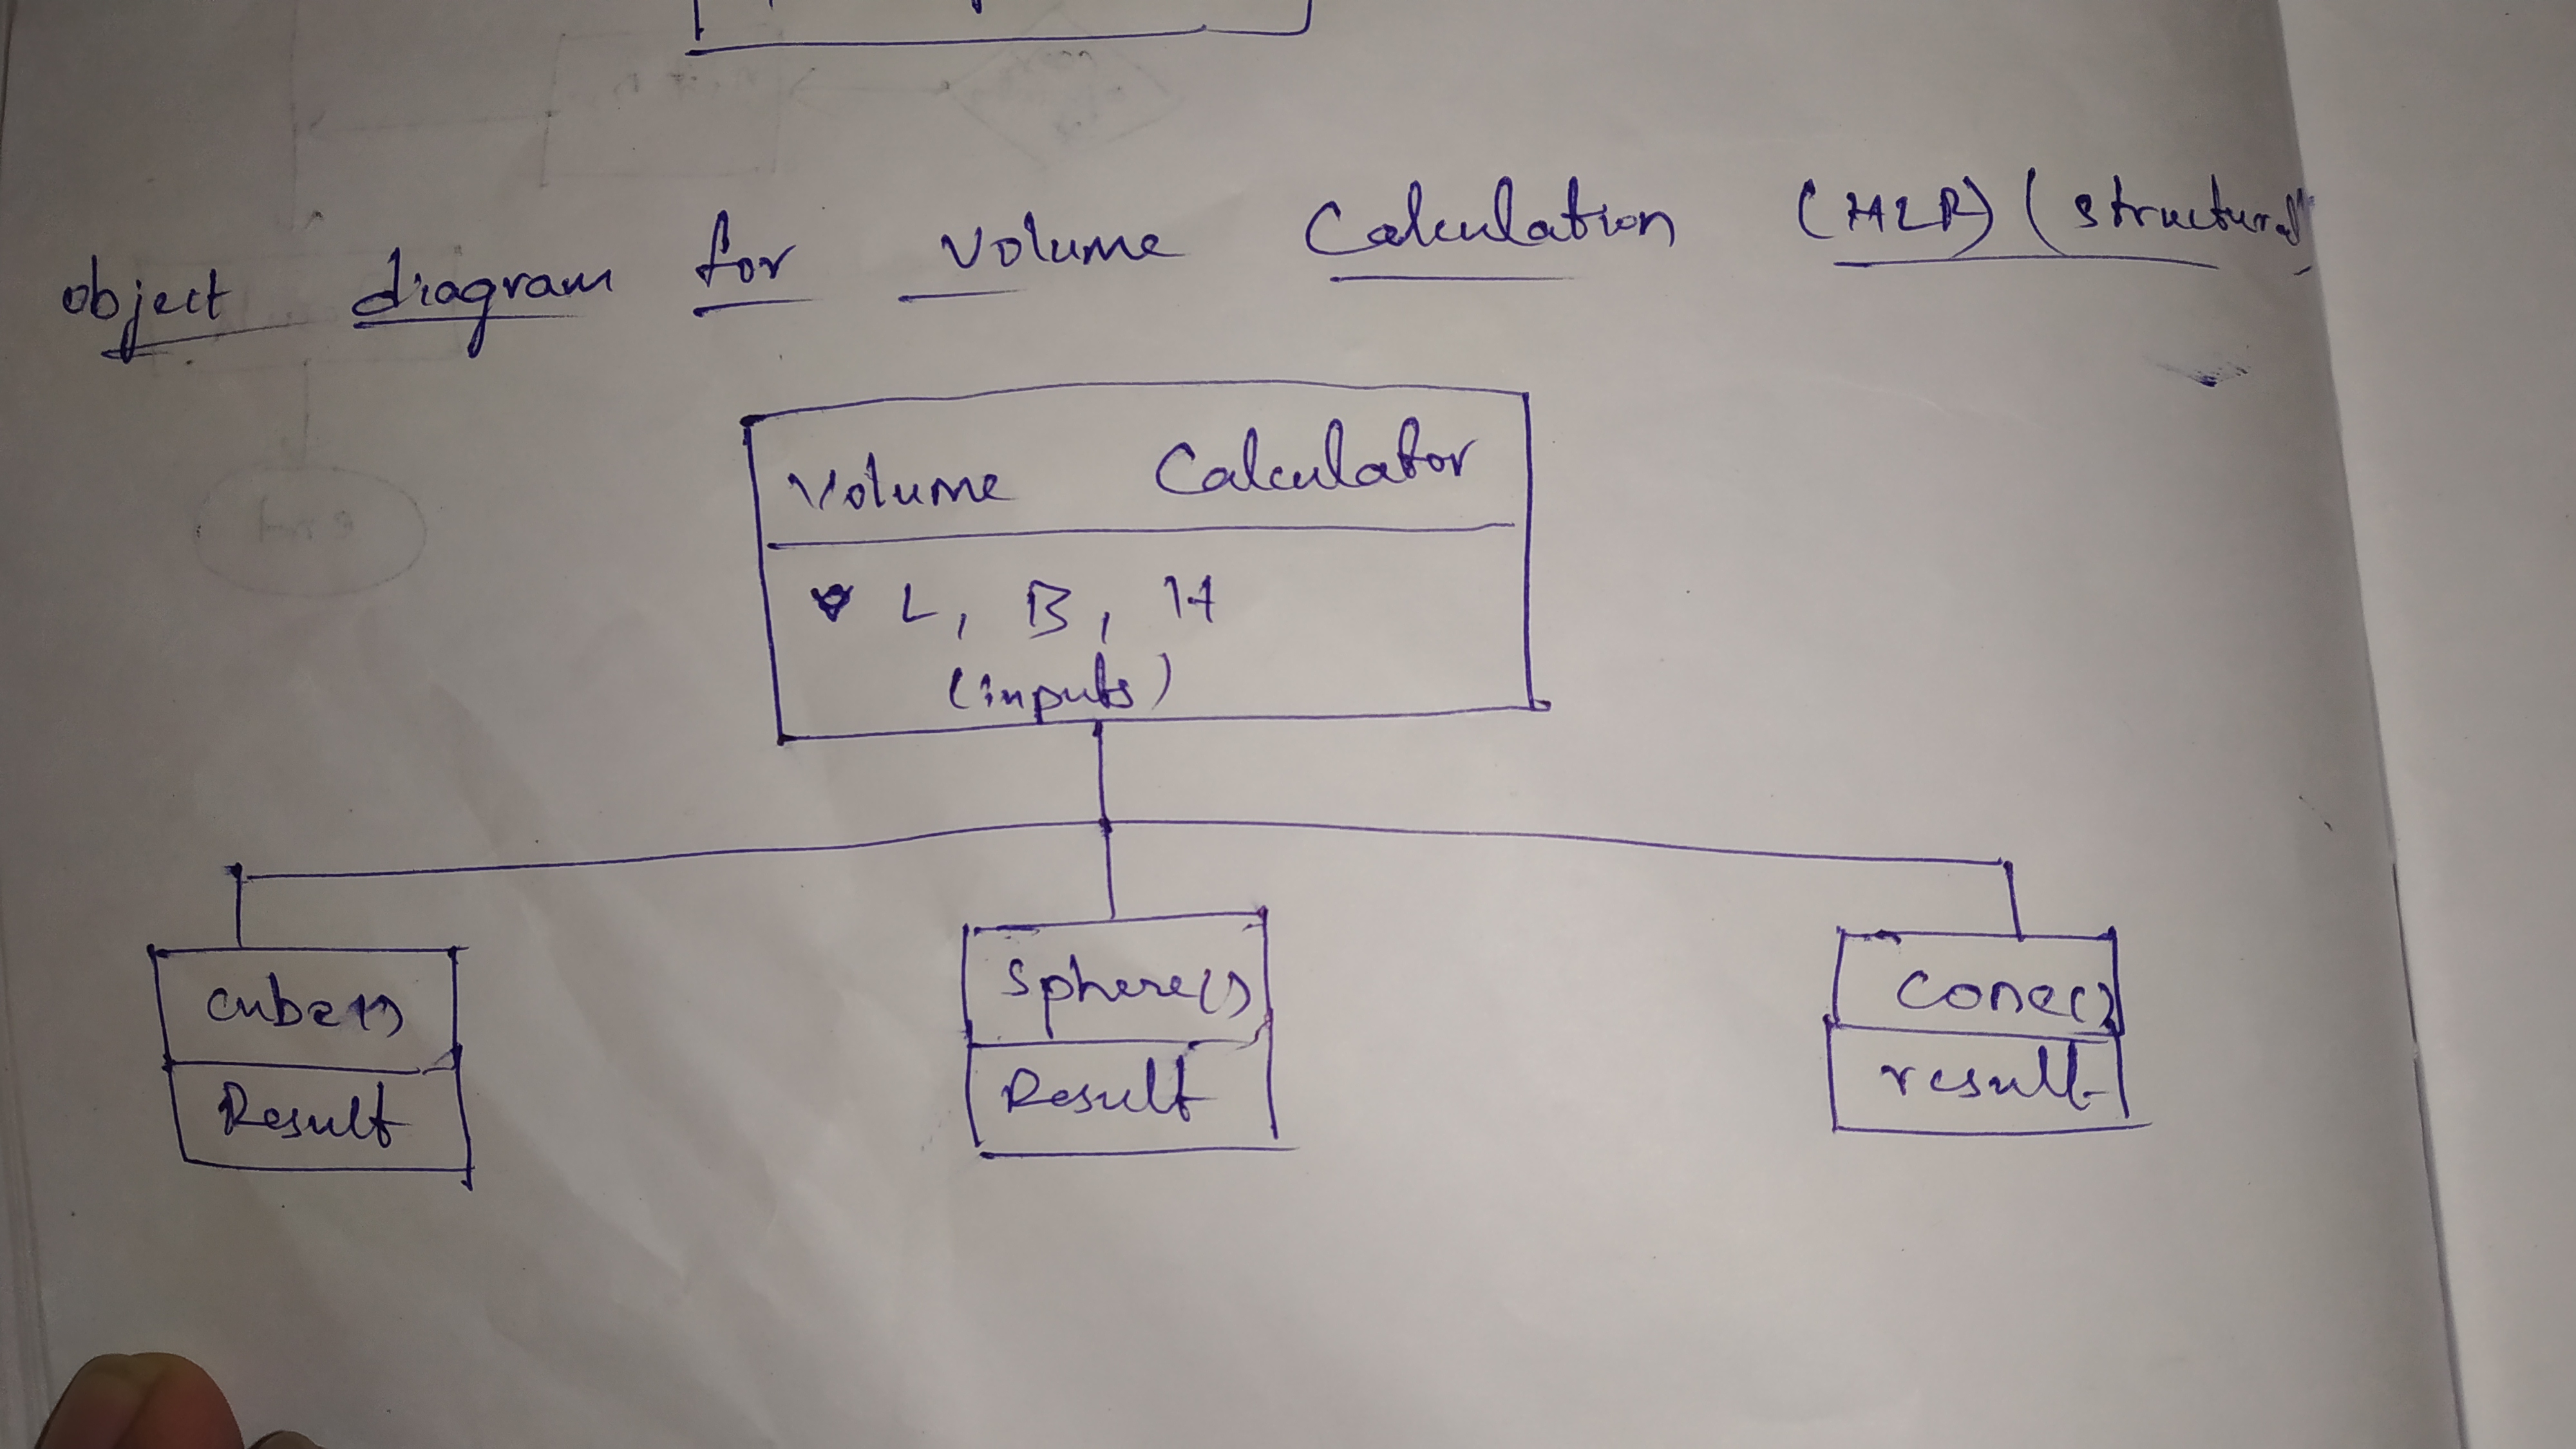 object diagram for volume Calculation (HLR) (structural)
Volume Calculator
L, B, H
(inputs)
cube()
Result
Sphere()
Result
Cone()
result